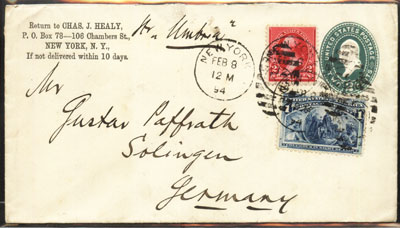 Return to CHAS. J. HEALY,
P. O. Box 78—106 Chambers St.,
NEW YORK, N. Y.,
If not delivered within 10 days.
"Umbria"
NEW YORK
FEB 8
12 M
94
UNITED STATES POSTAGE
2 2
1 1
Mr
Gustav Paffrath
Solingen
Germany